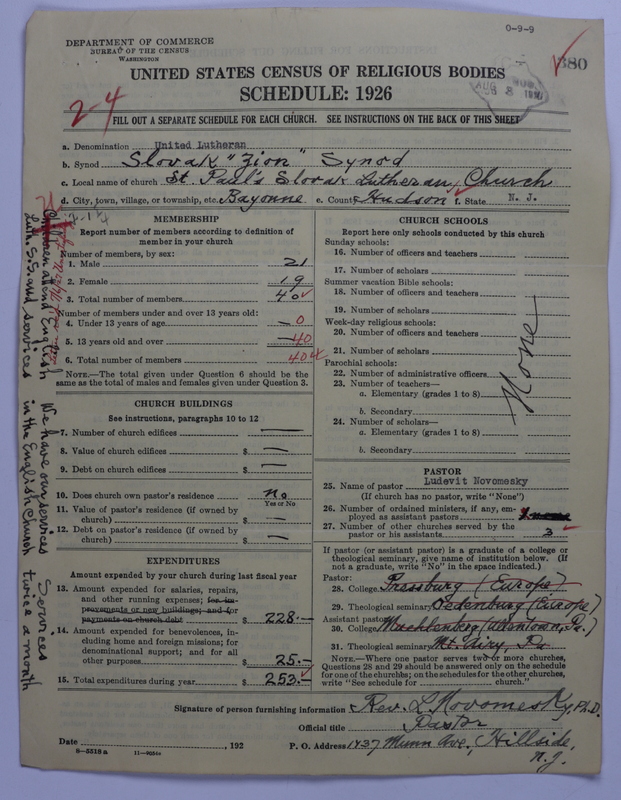 0-9-9
DEPARTMENT OF COMMERCE
BUREAU OF THE CENSUS
WASHINGTON
380
UNITED STATES CENSUS OF RELIGIOUS BODIES
SCHEDULE: 1926
AUG
2-4
FILL OUT A SEPARATE SCHEDULE FOR EACH CHURCH. SEE INSTRUCTIONS ON THE BACK OF THIS SHEET
a. Denomination United Lutheran
b. Synod Slovak "Zion" Synod
c. Local name of church St. Paul's Slovak Lutheran Church
d. City, town, village, or township, etc. Bayonne e. County Hudson f. State N. J.
MEMBERSHIP
Report number of members according to definition of
member in your church
Number of members, by sex:
1. Male 21
2. Female 19
3. Total number of members 40
Number of members under and over 13 years old:
4. Under 13 years of age 0
5. 13 years old and over 40
6. Total number of members 40
NOTE.—The total given under Question 6 should be the
same as the total of males and females given under Question 3.
CHURCH BUILDINGS
See instructions, paragraphs 10 to 12
7. Number of church edifices —
8. Value of church edifices $ —
9. Debt on church edifices $ —
10. Does church own pastor's residence No
Yes or No
11. Value of pastor's residence (if owned by
church) $ —
12. Debt on pastor's residence (if owned by
church) $ —
EXPENDITURES
Amount expended by your church during last fiscal year
13. Amount expended for salaries, repairs,
and other running expenses; for im-
provements or new buildings; and for
payments on church debt $ 228.—
14. Amount expended for benevolences, in-
cluding home and foreign missions; for
denominational support; and for all
other purposes $ 25.—
15. Total expenditures during year $ 253.—
CHURCH SCHOOLS
Report here only schools conducted by this church
Sunday schools:
16. Number of officers and teachers
17. Number of scholars
Summer vacation Bible schools:
18. Number of officers and teachers
19. Number of scholars
Week-day religious schools:
20. Number of officers and teachers
21. Number of scholars
Parochial schools:
22. Number of administrative officers
23. Number of teachers—
a. Elementary (grades 1 to 8)
b. Secondary
24. Number of scholars—
a. Elementary (grades 1 to 8)
b. Secondary
None
PASTOR
25. Name of pastor Ludevit Novomesky
(If church has no pastor, write "None")
26. Number of ordained ministers, if any, em-
ployed as assistant pastors
27. Number of other churches served by the
pastor or his assistants 3
If pastor (or assistant pastor) is a graduate of a college or
theological seminary, give name of institution below. (If
not a graduate, write "No" in the space indicated.)
Pastor:
28. College Pressburg (Europe)
29. Theological seminary Oedenburg (Europe)
Assistant pastor:
30. College Muehlenberg (Allentown, Pa.)
31. Theological seminary Mt. Airy, Pa.
NOTE.—Where one pastor serves two or more churches,
Questions 28 and 29 should be answered only on the schedule
for one of the churches; on the schedules for the other churches,
write "See schedule for church."
Signature of person furnishing information Rev. L. Novomesky, Ph.D.
Official title Pastor
Date , 192 P. O. Address 1437 Munn Ave., Hillside,
N.J.
8—5318 a
Children attend English
Luth. S.S. and services
We have our services
in the English Church
Services
twice a month